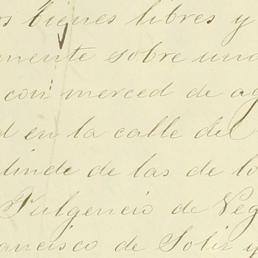 os bienes libres y
mente sobre una
con merced de ag
d en la calle del
linde de las de lo
Fulgencio de Veg
ancisco de Solis y